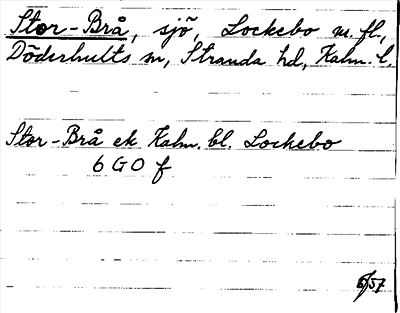 Stor-Brå, sjö, Lockebo m. fl.,
Döderhults sn, Stranda hd, Kalm. l.
Stor-Brå ek Kalm. bl. Lockebo
6 G O f
6/57